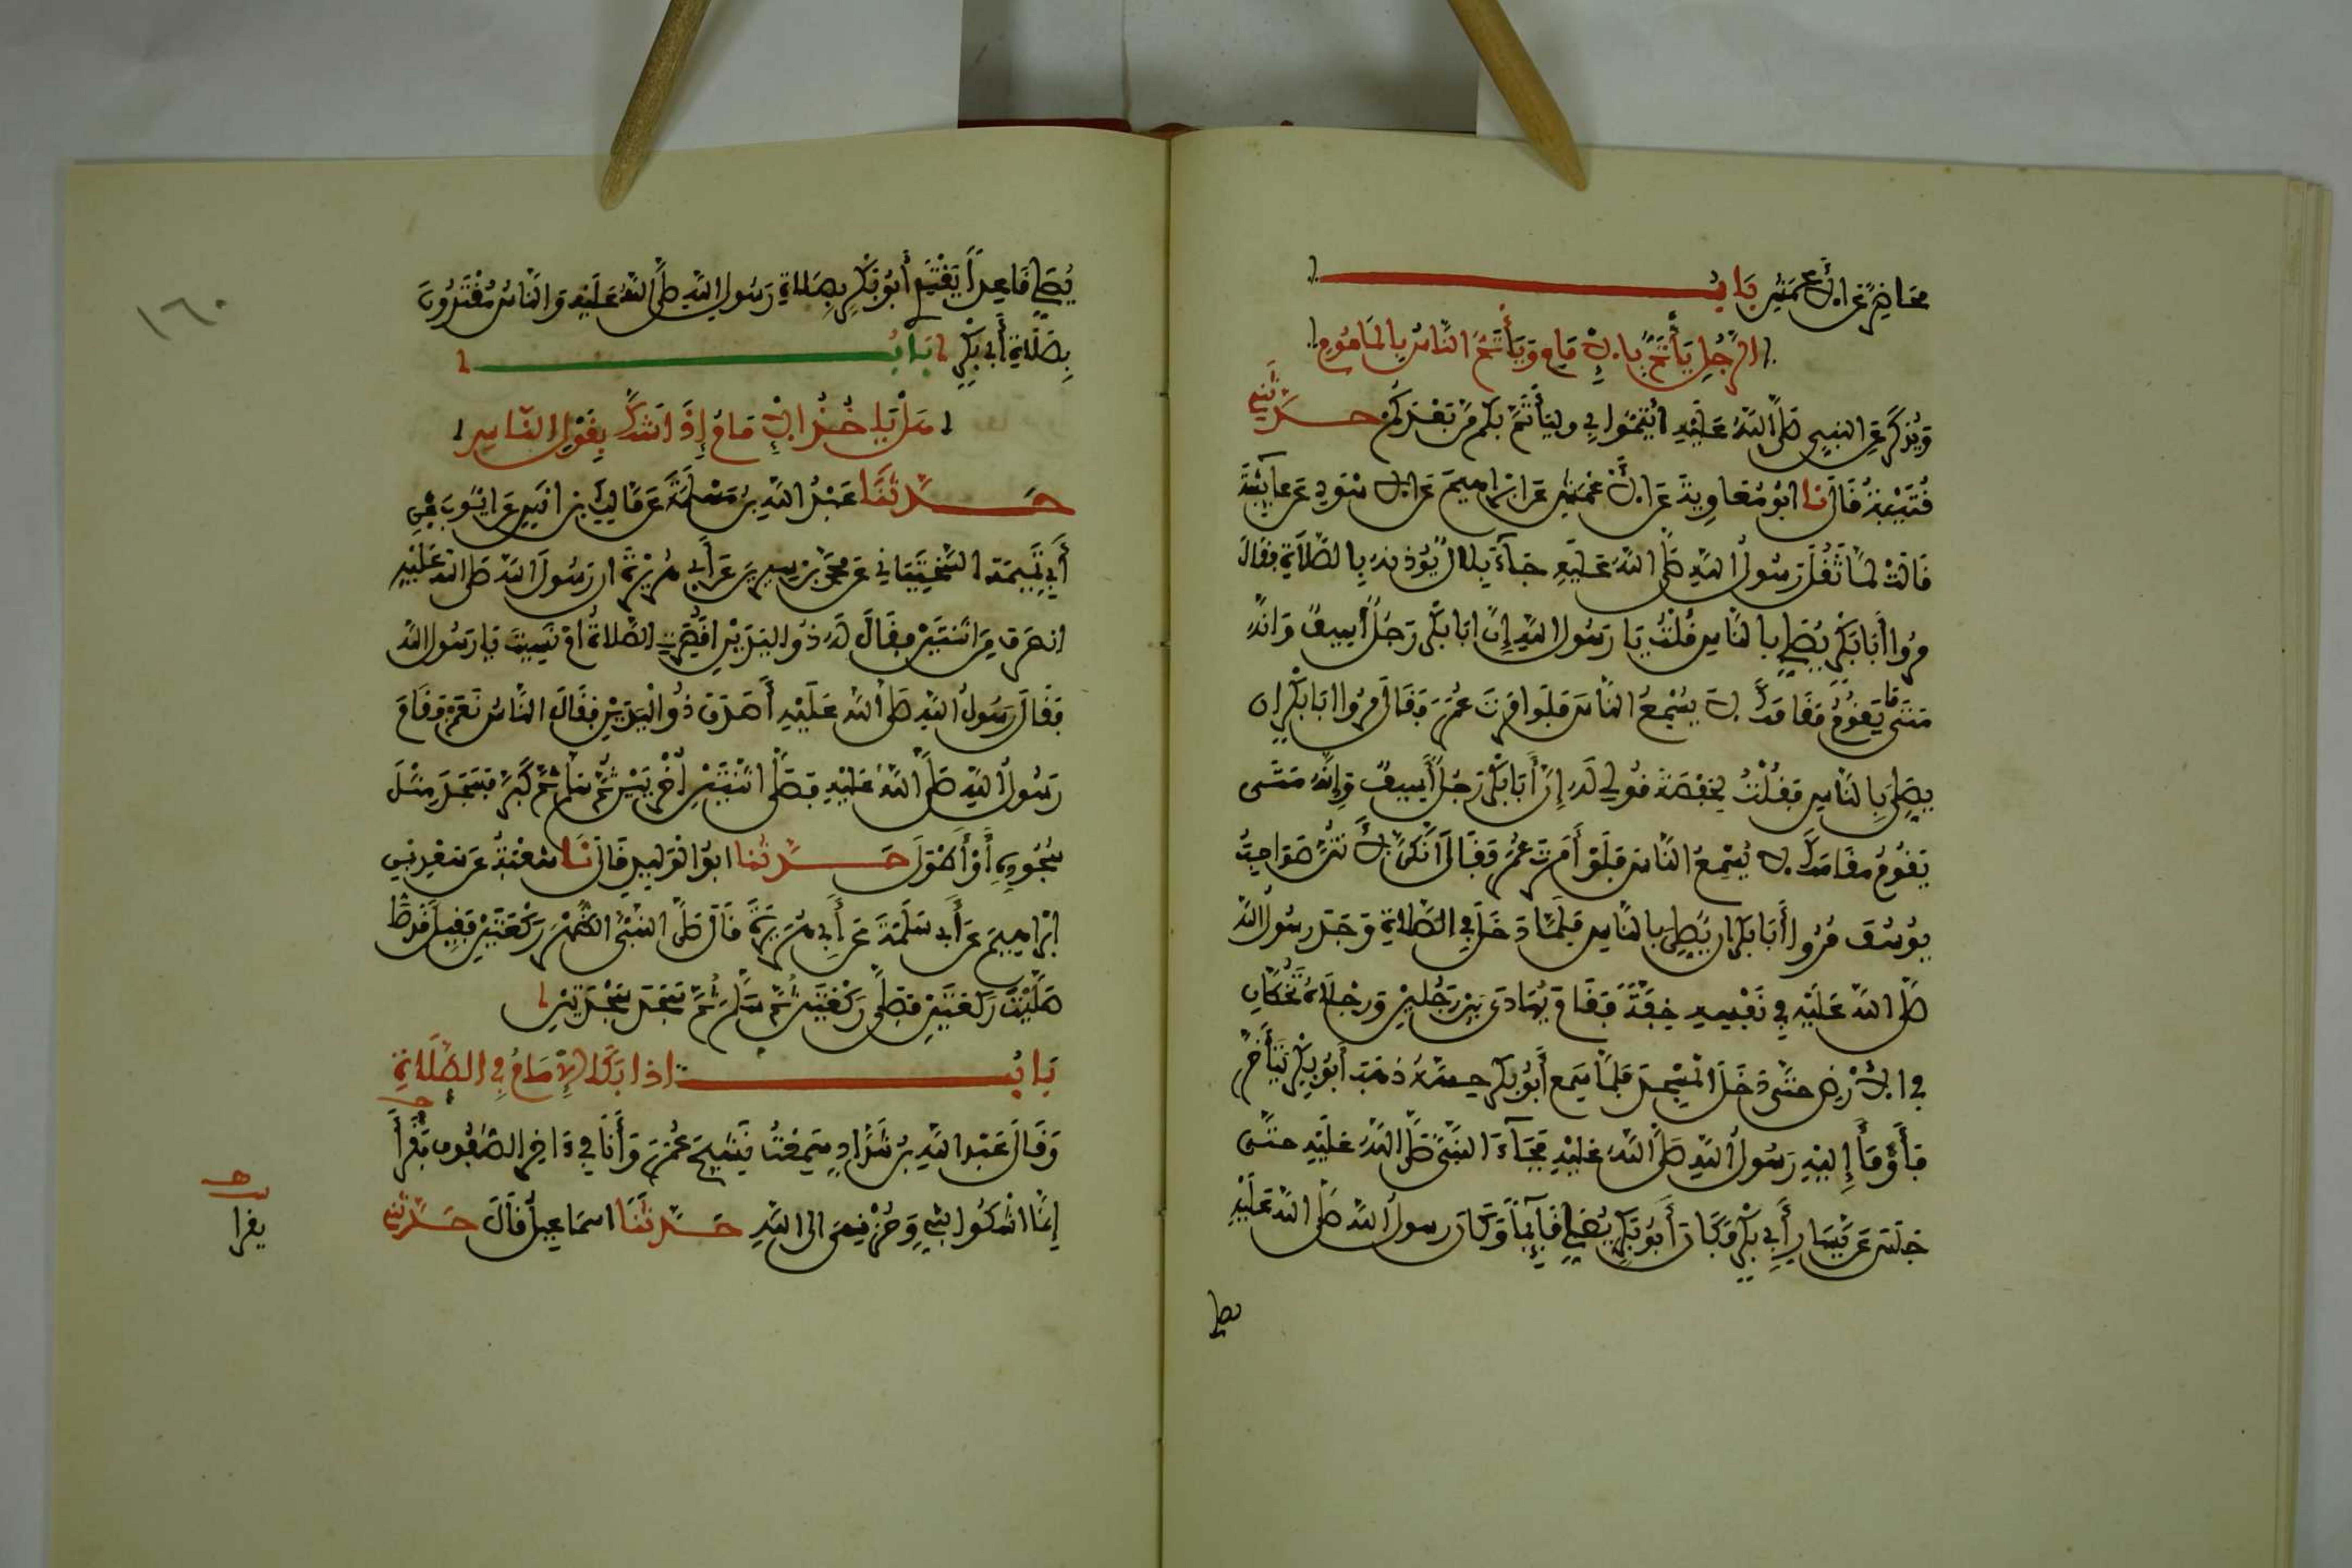 محاضر عن الأعمش باب
الرجل يأتم بالإمام ويأتم الناس بالماموم
ويذكر عن النبي صلى الله عليه ائتموا بي وليأتم بكم من بعدكم حدثني
قتيبة قال نا ابو معاوية عن الأعمش عن ابراهيم عن الأسود عن عائشة
قالت لما ثقل رسول الله صلى الله عليه جاء بلال يؤذنه بالصلاة فقال
مروا أبا بكر يصلي بالناس فقلت يا رسول الله إن ابا بكر رجل أسيف وانه
متى يقوم مقامك لا يسمع الناس فلو امرت عمر فقال مروا ابا بكر ان
يصلي بالناس فقلت لحفصة قولي له إن أبا بكر رجل أسيف وإنه متى
يقوم مقامك لا يسمع الناس فلو أمرت عمر فقال انكن لأنتن صواحب
يوسف مروا أبا بكر ان يصلي بالناس فلما دخل في الصلاة وجد رسول الله
صلى الله عليه في نفسه خفة فقام يهادى بين رجلين ورجلاه تخطان
في الأرض حتى دخل المسجد فلما سمع أبو بكر حسه ذهب أبو بكر يتأخر
فأومأ إليه رسول الله صلى الله عليه فجاء النبي صلى الله عليه حتى
جلس عن يسار أبي بكر وكان أبو بكر يصلي قائما وكان رسول الله صلى الله عليه
يصلي
١٦٠
يصلي قاعدا يقتدي أبو بكر بصلاة رسول الله صلى الله عليه والناس مقتدون
بصلاة أبي بكر باب
هل ياخذ الإمام إذا شك بقول الناس
حدثنا عبد الله بن مسلمة عن مالك بن انس عن ايوب بن
أبي تميمة السختياني عن محمد بن سيرين عن أبي هريرة ان رسول الله صلى الله عليه
انصرف من اثنتين فقال له ذو اليدين اقصرت الصلاة ام نسيت يا رسول الله
فقال رسول الله صلى الله عليه أصدق ذو اليدين فقال الناس نعم فقام
رسول الله صلى الله عليه فصلى اثنتين أخريين ثم سلم ثم كبر فسجد مثل
سجوده أو أطول حدثنا ابو الوليد قال نا شعبة عن سعد بن
ابراهيم عن أبي سلمة عن أبي هريرة قال صلى النبي الظهر ركعتين فقيل قد
صليت ركعتين فصلى ركعتين ثم سلم ثم سجد سجدتين
باب اذا بكا الإمام في الصلاة
وقال عبد الله بن شداد سمعت نشيج عمر وأنا في ءاخر الصفوف يقرأ
إنما اشكوا بثي وحزني الى الله حدثنا اسماعيل قال حدثني
يقرا